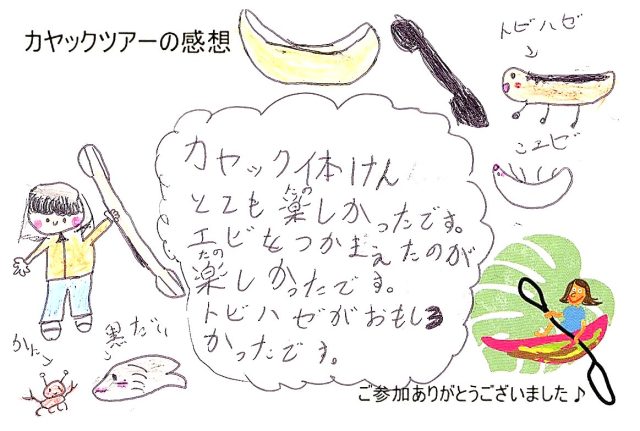 カヤックツアーの感想
トビハゼ
エビ
カヤック体けん
とても楽しかったです。
エビをつかまえたのが
楽しかったです。
トビハゼがおもしろ
かったです。
かに
黒だい
ご参加ありがとうございました♪